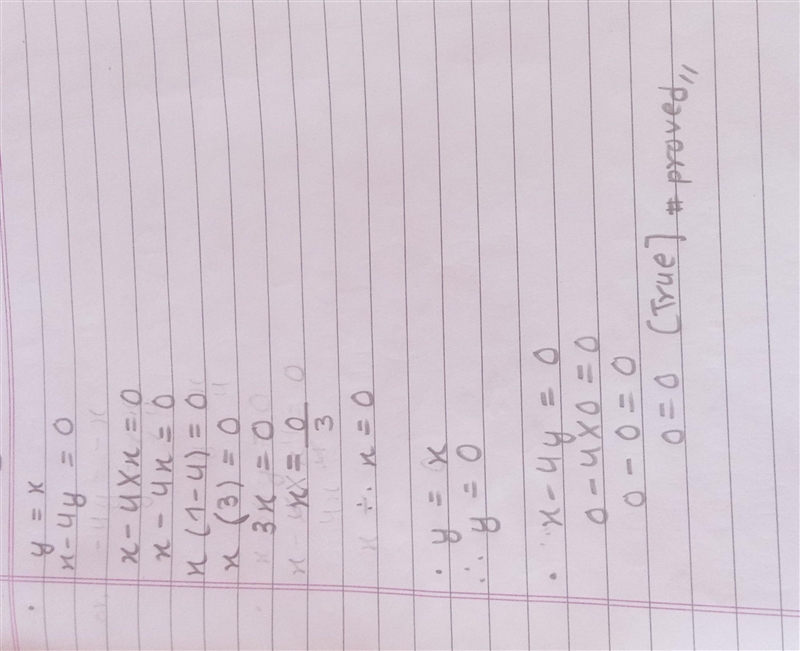 · y = x
x - 4y = 0
x - 4×x = 0
x - 4x = 0
x (1-4) = 0
x (3) = 0
3x = 0
x = 0/3
∴ x = 0
· y = x
∴ y = 0
· x - 4y = 0
0 - 4×0 = 0
0 - 0 = 0
0 = 0 (True] # proved,,